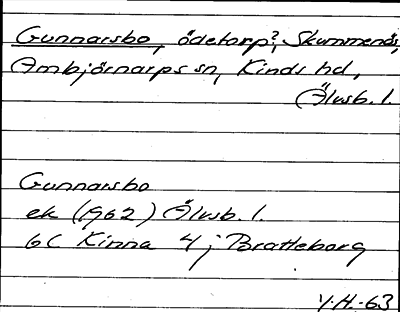 Gunnarsbo, ödetorp?, Skummenäs,
Ambjörnarps sn, Kinds hd,
Älvsb. l.
Gunnarsbo
ek (1962) Älvsb. l.
6C Kinna 4 j Brattleborg
V.H.-63